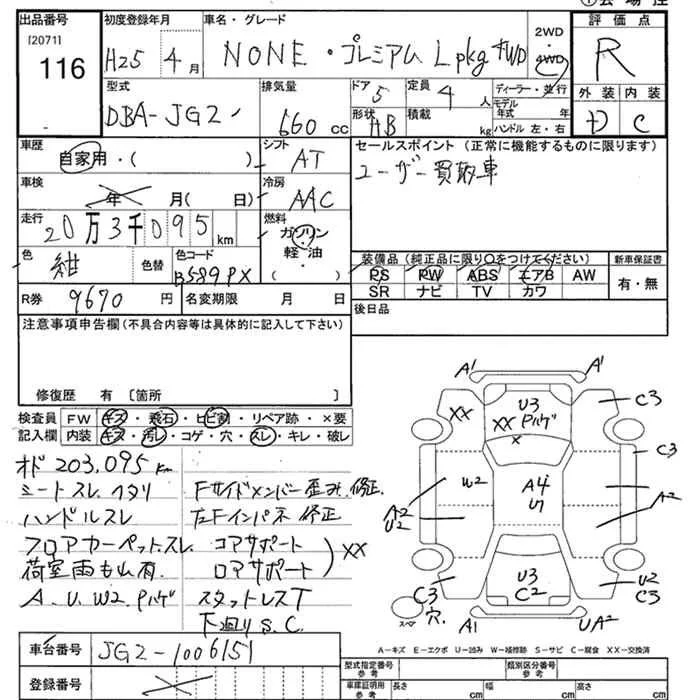 ①会場控
出品番号
[2071]
116
初度登録年月
H25 4月
車名・グレード
NONE・プレミアム L pkg 4WD
2WD
4WD
評価点
R
外装 内装
D C
型式
DBA-JG2
排気量
660 cc
ドア
5
形状
HB
定員
4 人
積載
kg
ディーラー・並行
モデル年式 年
ハンドル 左・右
車歴
自家用・( )
シフト
AT
セールスポイント (正常に機能するものに限ります)
ユーザー買取車
車検
年 月( 日)
冷房
AAC
走行
20万3千095 km
燃料
ガソリン
軽・油
( )
色
紺
色替
色コード
B589PX
装備品 (純正品に限り○をつけてください)
PS PW ABS エアB AW
SR ナビ TV カワ
新車保証書
有・無
R券 9670 円
名変期限 月 日
後日品
注意事項申告欄 (不具合内容等は具体的に記入して下さい)
修復歴 有 〔箇所 〕
検査員
記入欄
FW キズ・飛石・ヒビ割・リペア跡・×要
内装 キズ・汚レ・コゲ・穴・スレ・キレ・破レ
オド 203,095 km
シートスレ、ヘタリ
ハンドルスレ
フロアカーペットスレ
荷室雨もり有
A.U.W2.Pハゲ
Fサイドメンバー歪み、修正
左Fインパネ修正
コアサポート
ロアサポート
XX
スタットレスT
下廻りS.C.
A1 A1
XX
U3
XX Pハゲ
×
C3
C3
W2
A4
U1
A2
U2
A2
U3
C2
C3
穴
U2
C3
スペア
A1
UA2
A-キズ E-エクボ U-凹み W-補修跡 S-サビ C-腐食 XX-交換済
車台番号
JG2-1006151
登録番号
型式指定番号
参考
類別区分番号
参考
車庫証明用
参考
長さ cm
幅 cm
高さ cm